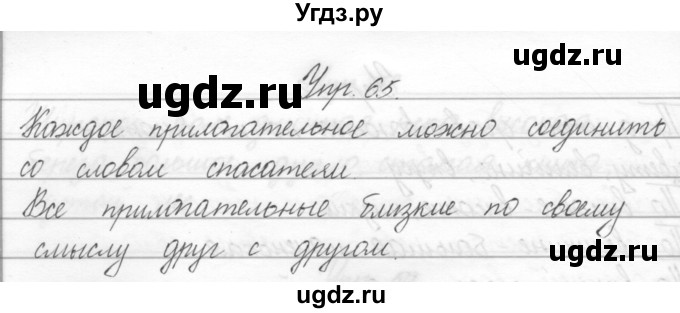 Угдз.ру
ugdz.ru ugdz.ru
Упр. 65.
ugdz.ru
Каждое прилагательное можно соединить
со словом спасатели.
ugdz.ru ugdz.ru
Все прилагательные близкие по своему
смыслу друг с другом.
ugdz.ru ugdz.ru
ugdz.ru